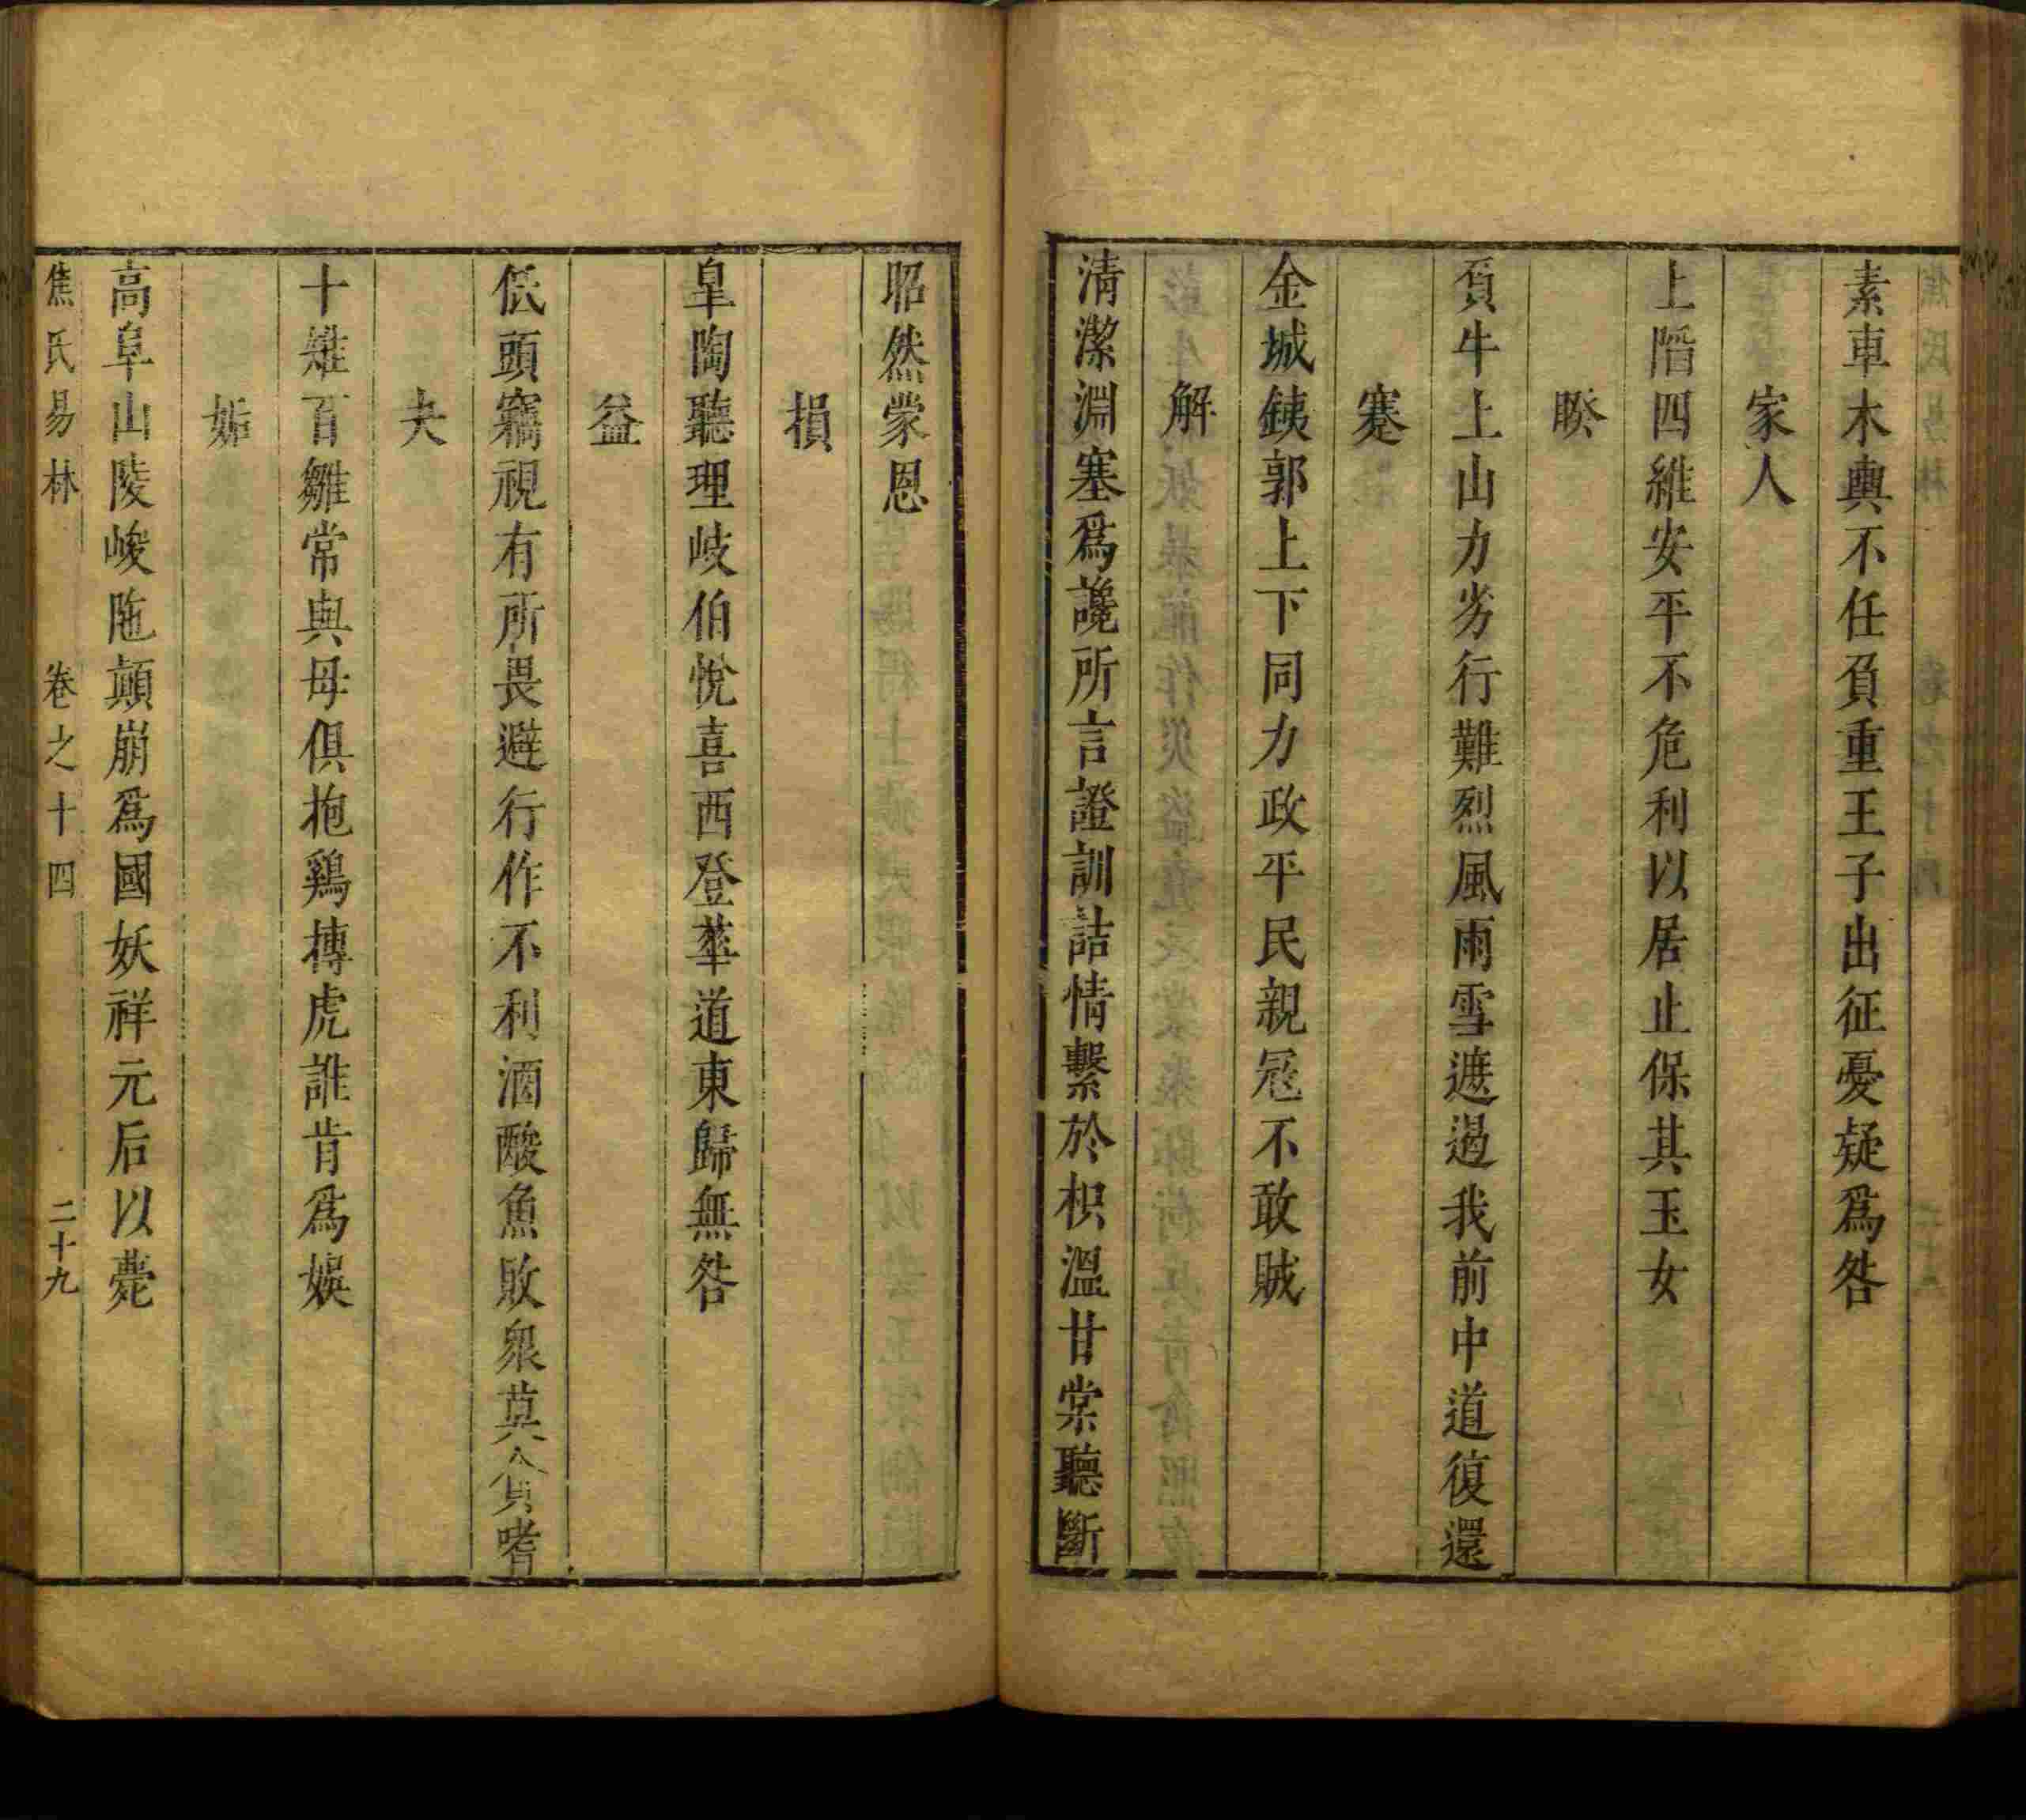 素車木輿不任負重王子出征憂疑爲咎
家人
上階四維安平不危利以居止保其玉女
睽
負牛上山力劣行難烈風雨雪遮遏我前中道復還
蹇
金城銕郭上下同力政平民親寇不敢賊
解
清潔淵塞爲讒所言證訓詰情繫於枳溫甘棠聽斷
昭然蒙恩
損
皐陶聽理岐伯悅喜西登華道東歸無咎
益
低頭竊視有所畏避行作不利酒酸魚敗衆莫貪嗜
夬
十雉百雛常與母俱抱鷄搏虎誰肯爲娛
姤
高阜山陵峻陁顛崩爲國妖祥元后以薨
焦氏易林 卷之十四 二十九